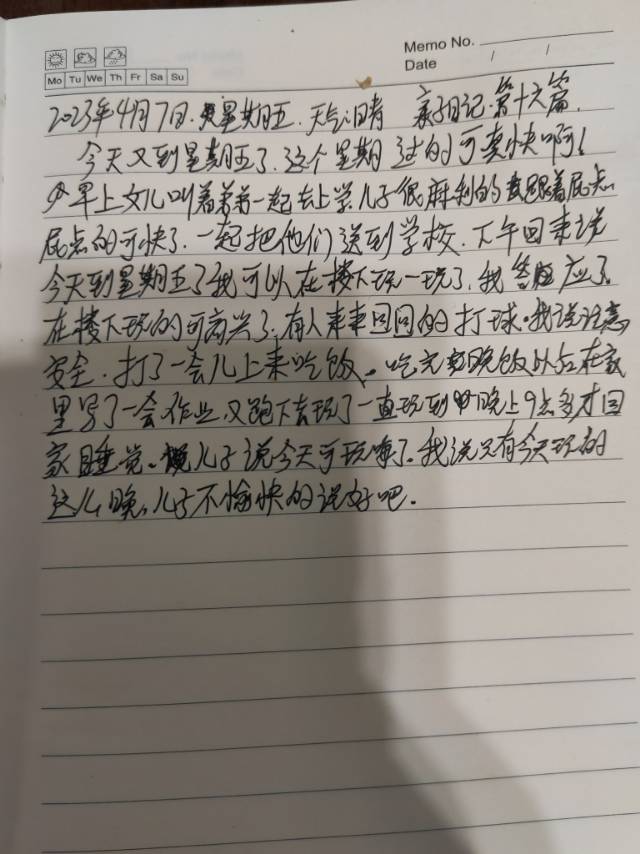 Memo No.
Mo Tu We Th Fr Sa Su
Date / /
2023年4月7日.星期五.天气:晴 亲子日记.第十六篇.
今天又到星期五了.这个星期过的可真快啊!
早上女儿叫着弟弟一起去上学.儿子很麻利的跟着屁点
屁点的可快了.一起把他们送到学校.下午回来说
今天到星期五了我可以在楼下玩一玩了.我答应了.
在楼下玩的可高兴了.有人来来回回的打球.我说注意
安全.打了一会儿上来吃饭.吃完晚饭以后在家
里写了一会作业.又跑下去玩了一直玩到晚上9点多才回
家睡觉.儿子说今天可玩嗨了.我说只有今天玩的
这么晚.儿子不愉快的说好吧.